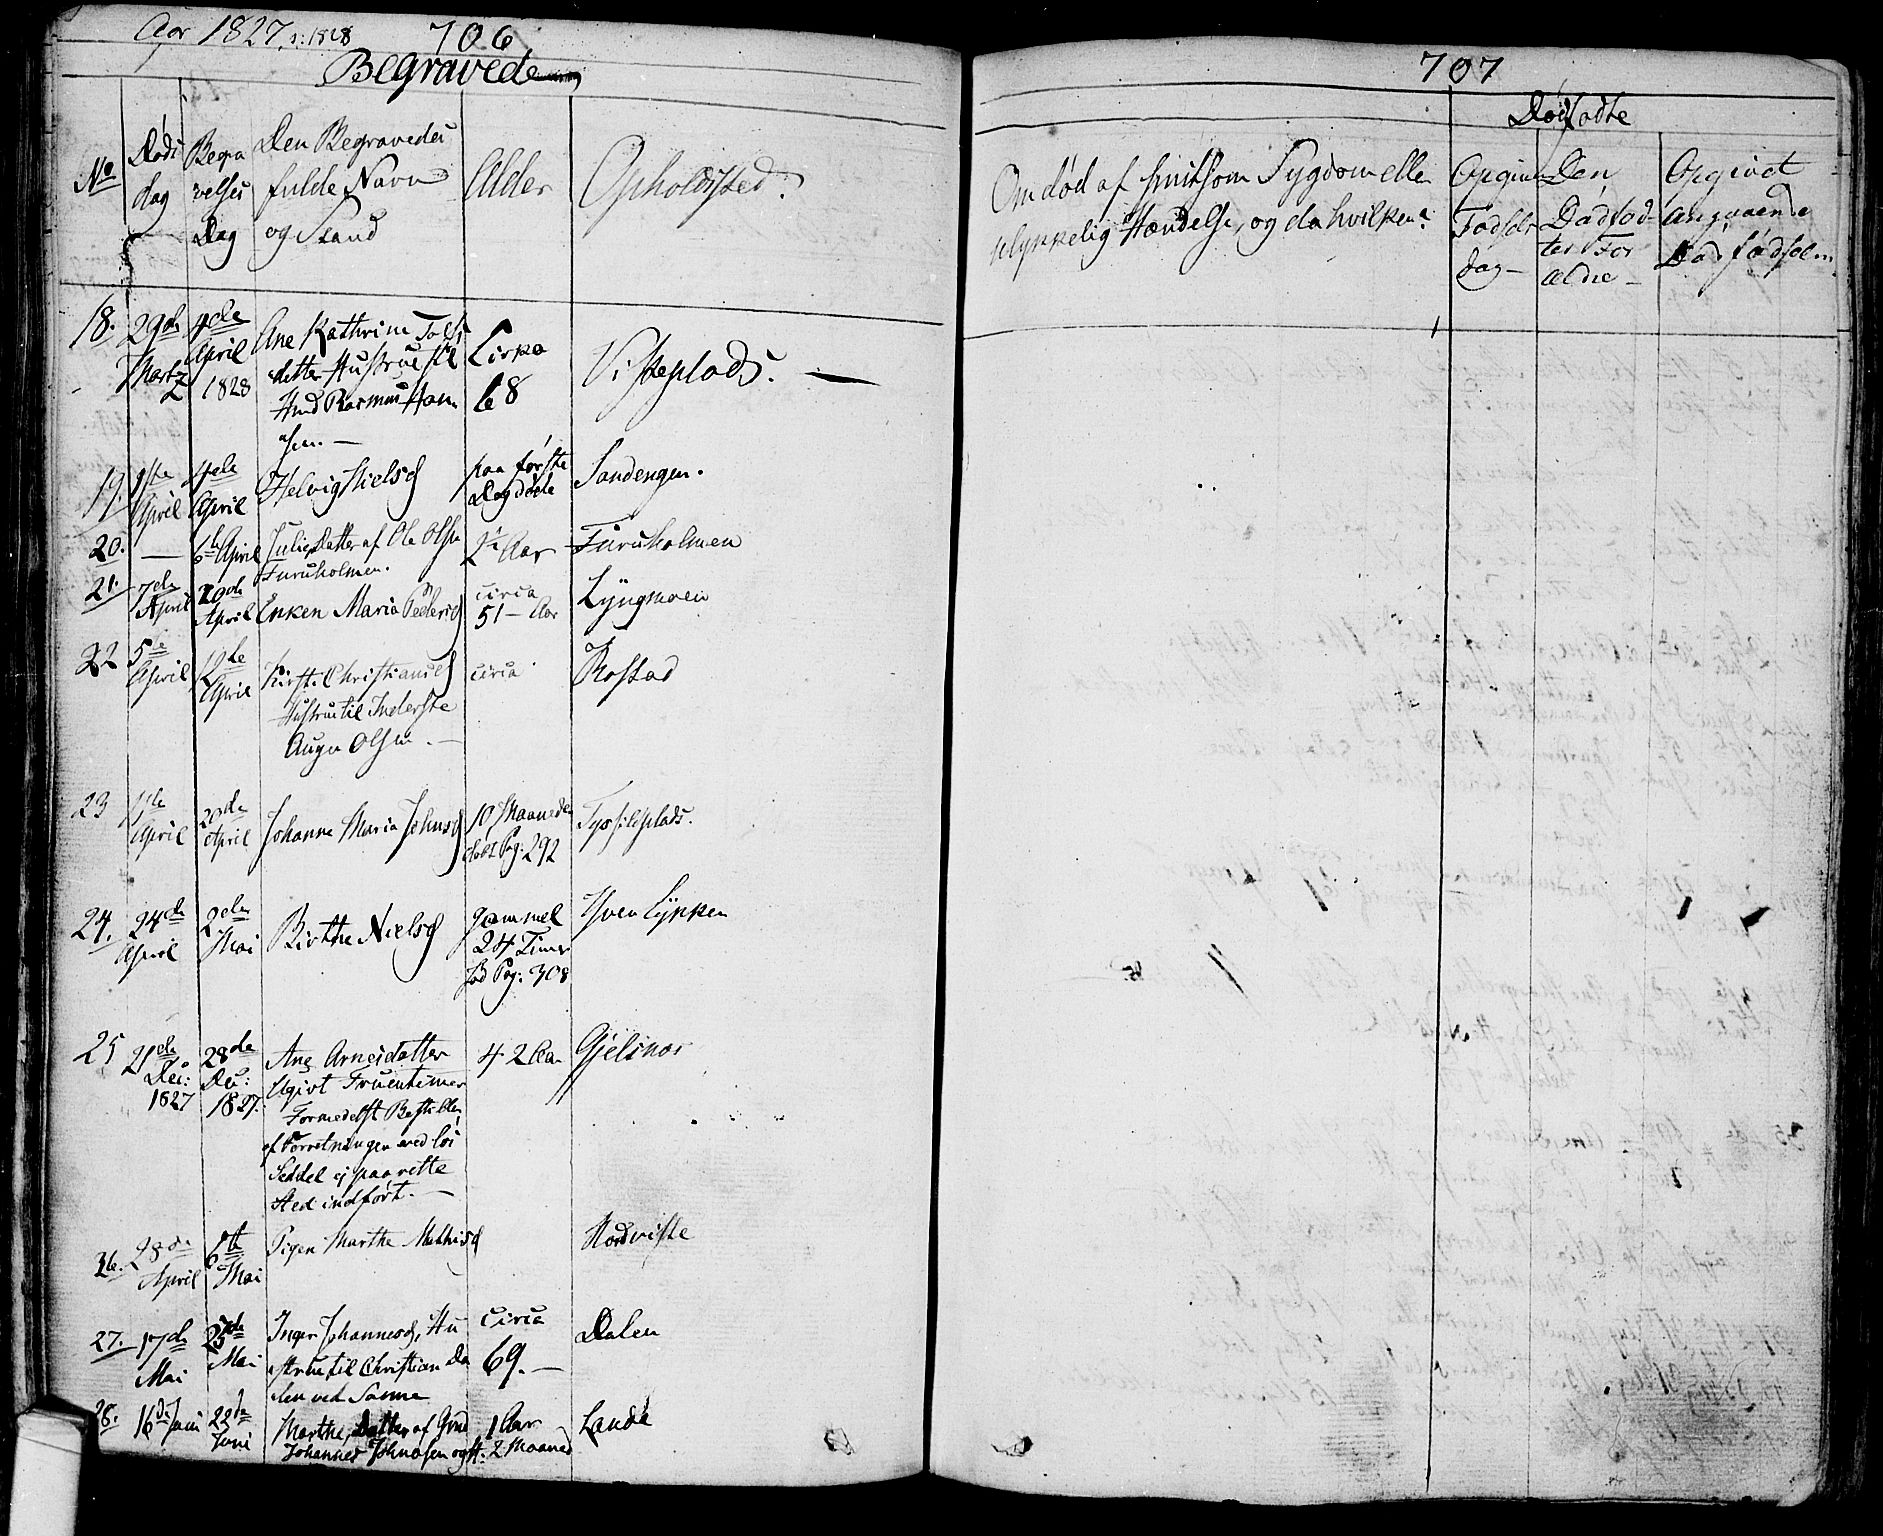 Aar 1827, 1828
706
Begravede
No
Døds
dag
Begra
velses
Dag
Den Begravedes
fulde Navn
og Stand
Alder
Opholdssted.
18.
29de
Martz
4de
April
1828
Ane Kathrine
datter Hustrue til
Rasmus Han
sen. —
Cirka
68
Visteplads. —
19.
1ste
April
4de
April
Helvig Nielsd
paa første
Dag døde
Sandengen.
20.
—
6te April
Julie, Datter af Ole Olsen
Furuholmen.
2½ Aar
Furuholmen
21.
7de
April
20de
April
Enken Maria Pedersd
circa
51 — Aar
Lyngmoen
22
5te
April
12te
April
Kirsti Christiansd
Hustrue til Inderste
Olsen. —
circa
Rostad
23
11te
April
20de
April
Johanne Maria Johnsd
10 Maaneder
døbt Pag: 292
24.
24de
April
2den
Mai
Birthe Nielsd
gammel
24 Timer
Pag: 308
25
21de
Dec:
1827
28de
Dec:
1827.
Ane Arnesdatter
Ugivt Fruentimer
Formedelst Bestillen
af Forretningen ved løs
Seddel ej paa rette
Sted indført. —
42 Aar
Gjelsnes
26.
28de
April
6te
Mai
Pigen Marthe Mathisd
Nordviste
27.
17de
Mai
25de
Mai
Inger Johannesd, Hu
strue til Christian Da
len ved Sanne
circa
69. —
Dalen
28.
16de Juni
22de
Juni
Marthe, Datter af Grd
Johannes Johnsen og H.
1 Aar
2 Maaned
Lande
707
Om død af smitsom Sygdom eller
ulykkelig Hændelse, og da hvilken?
Dødfødte
Opgiven
Fødsels
dag —
Den
Dødfød-
tes For
ældre —
Opgivet
angaaende
Dødfødselen